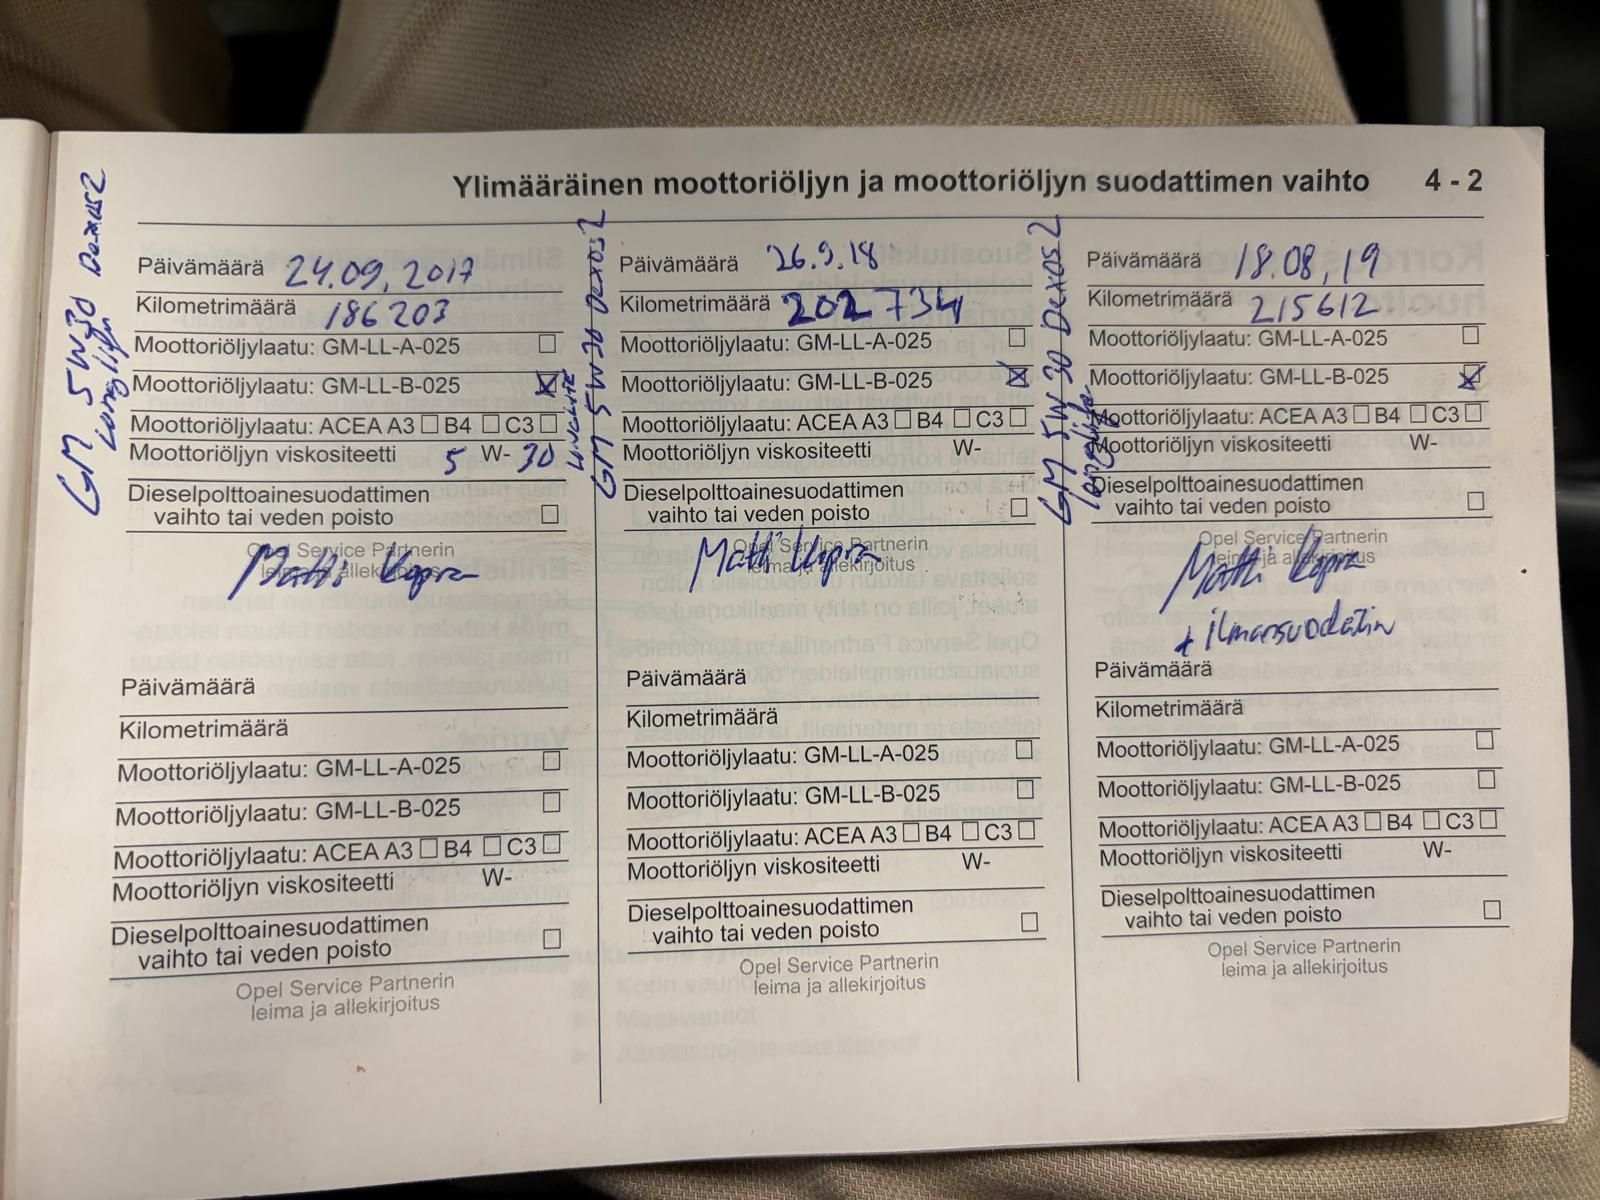 Ylimääräinen moottoriöljyn ja moottoriöljyn suodattimen vaihto 4 - 2
GM 5W30 Dexos2
Longlife
Päivämäärä 24.09.2017
Kilometrimäärä 186203
Moottoriöljylaatu: GM-LL-A-025 ☐
Moottoriöljylaatu: GM-LL-B-025 ☒
Moottoriöljylaatu: ACEA A3 ☐ B4 ☐ C3 ☐
Moottoriöljyn viskositeetti 5 W- 30
Dieselpolttoainesuodattimen
vaihto tai veden poisto ☐
Opel Service Partnerin
leima ja allekirjoitus
Matti Kopra
GM 5W30 Dexos2
Päivämäärä 26.9.18
Kilometrimäärä 202734
Moottoriöljylaatu: GM-LL-A-025 ☐
Moottoriöljylaatu: GM-LL-B-025 ☒
Moottoriöljylaatu: ACEA A3 ☐ B4 ☐ C3 ☐
Moottoriöljyn viskositeetti W-
Dieselpolttoainesuodattimen
vaihto tai veden poisto ☐
Opel Service Partnerin
leima ja allekirjoitus
Matti Kopra
GM 5W30 Dexos2
Longlife
Päivämäärä 18.08.19
Kilometrimäärä 215612
Moottoriöljylaatu: GM-LL-A-025 ☐
Moottoriöljylaatu: GM-LL-B-025 ☒
Moottoriöljylaatu: ACEA A3 ☐ B4 ☐ C3 ☐
Moottoriöljyn viskositeetti W-
Dieselpolttoainesuodattimen
vaihto tai veden poisto ☐
Opel Service Partnerin
leima ja allekirjoitus
Matti Kopra
+ ilmansuodatin
Päivämäärä
Kilometrimäärä
Moottoriöljylaatu: GM-LL-A-025 ☐
Moottoriöljylaatu: GM-LL-B-025 ☐
Moottoriöljylaatu: ACEA A3 ☐ B4 ☐ C3 ☐
Moottoriöljyn viskositeetti W-
Dieselpolttoainesuodattimen
vaihto tai veden poisto ☐
Opel Service Partnerin
leima ja allekirjoitus
Päivämäärä
Kilometrimäärä
Moottoriöljylaatu: GM-LL-A-025 ☐
Moottoriöljylaatu: GM-LL-B-025 ☐
Moottoriöljylaatu: ACEA A3 ☐ B4 ☐ C3 ☐
Moottoriöljyn viskositeetti W-
Dieselpolttoainesuodattimen
vaihto tai veden poisto ☐
Opel Service Partnerin
leima ja allekirjoitus
Päivämäärä
Kilometrimäärä
Moottoriöljylaatu: GM-LL-A-025 ☐
Moottoriöljylaatu: GM-LL-B-025 ☐
Moottoriöljylaatu: ACEA A3 ☐ B4 ☐ C3 ☐
Moottoriöljyn viskositeetti W-
Dieselpolttoainesuodattimen
vaihto tai veden poisto ☐
Opel Service Partnerin
leima ja allekirjoitus